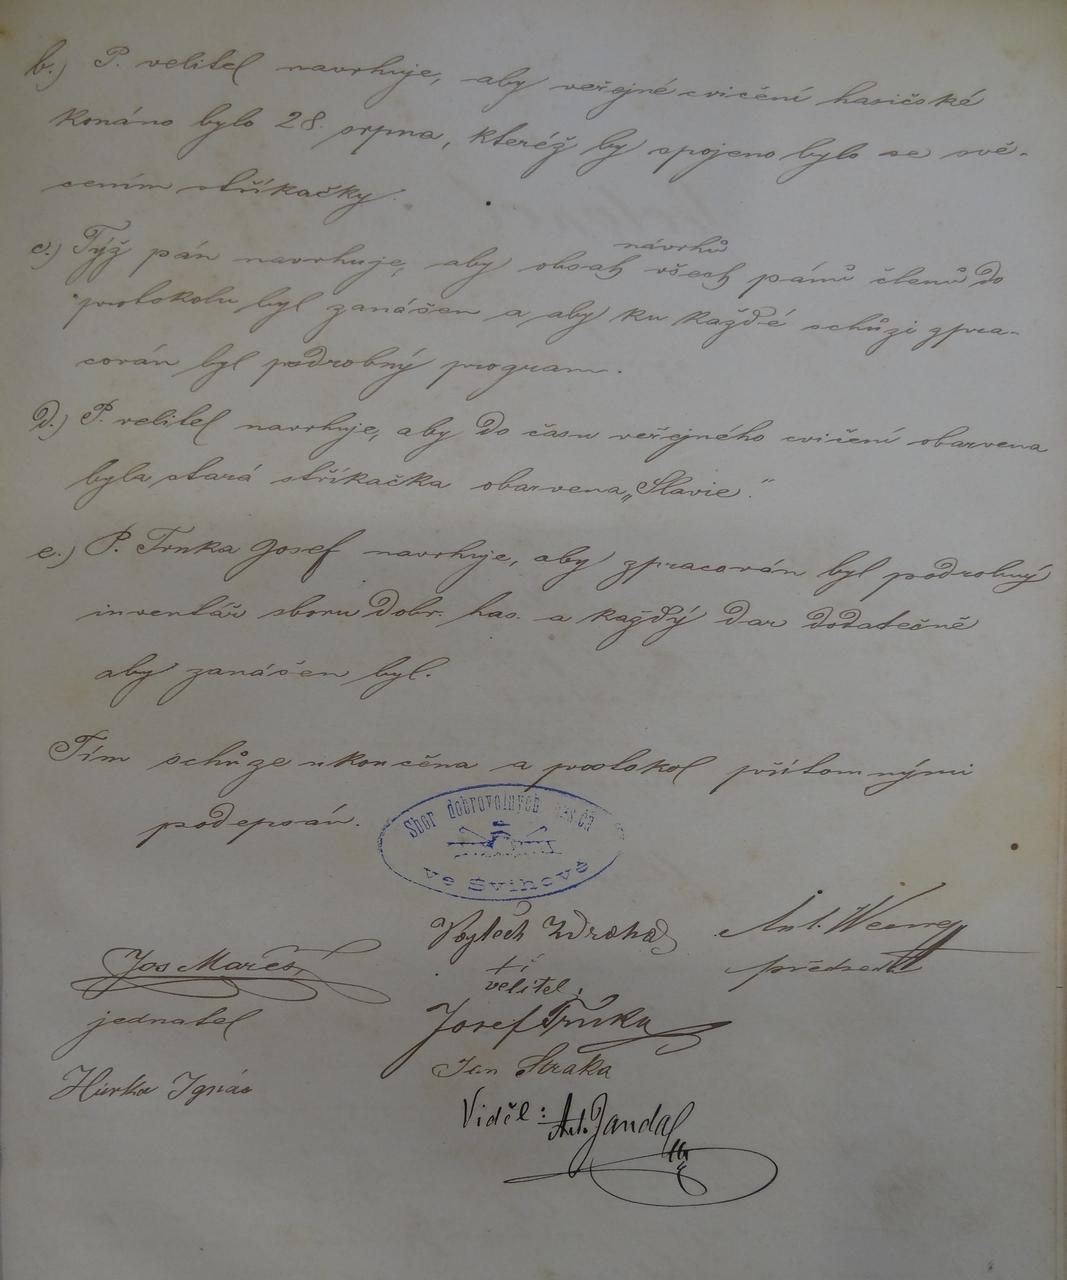 b.) P. velitel navrhuje, aby veřejné cvičení hasičské
konáno bylo 28. srpna, kteréž by spojeno bylo se svě-
cením stříkačky.
c.) Týž pán navrhuje, aby obsah návrhů všech pánů členů do
protokolu byl zanášen a aby ku každé schůzi zpra-
cován byl podrobný program.
d.) P. velitel navrhuje, aby do času veřejného cvičení obarvena
byla stará stříkačka obarvena „Slavie."
e.) P. Trnka Josef navrhuje, aby zpracován byl podrobný
inventář sboru dobr. has. a každý dar dodatečně
aby zanášen byl.
Tím schůze ukončena a protokol přítomnými
podepsán.
Sbor dobrovolných
ve Švihově
Vojtěch Zdrahal
Ant.
Jos Mareš
velitel,
předseda
jednatel
Josef Trnka
Jan Straka
Hůrka Ignác
Viděl: Ant. Jandal